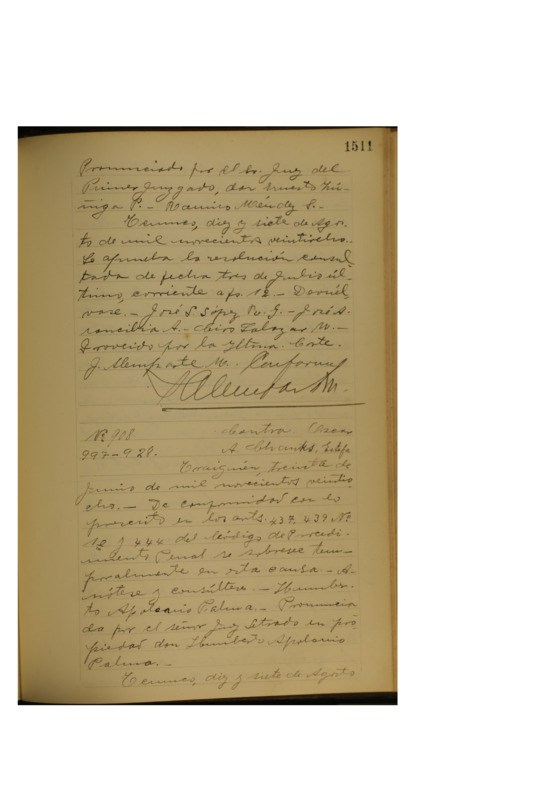 1511
Pronunciado por el Sr. Juez del
Primer Juzgado, don Ernesto Zú-
ñiga P. - Ramiro Méndez S. -
Temuco, diez y siete de Agos-
to de mil novecientos veintiocho.
Se aprueba la resolución consul-
tada de fecha tres de Julio úl-
timo, corriente a fs. 12 - Devuél-
vase. - José S López R. G. - José A.
rancibia A. - Ciro Salazar M. -
Proveído por la Iltma. Corte.
J. Memparte M. Conforme
N° 908. Contra Oscar
997-928. A Shanks. Estafa
Traiguén, treinta de
Junio de mil novecientos veintio-
cho. - De conformidad con lo
prescrito en los arts. 437, 439 N°
1° y 444 del Código de Procedi-
miento Penal se sobresee tem-
poralmente en esta causa. - A-
nótese y consúltese. - Humber-
to Apolonio Palma. - Pronuncia-
da por el señor Juez Letrado en pro-
piedad don Humberto Apolonio
Palma. -
Temuco, diez y siete de Agosto